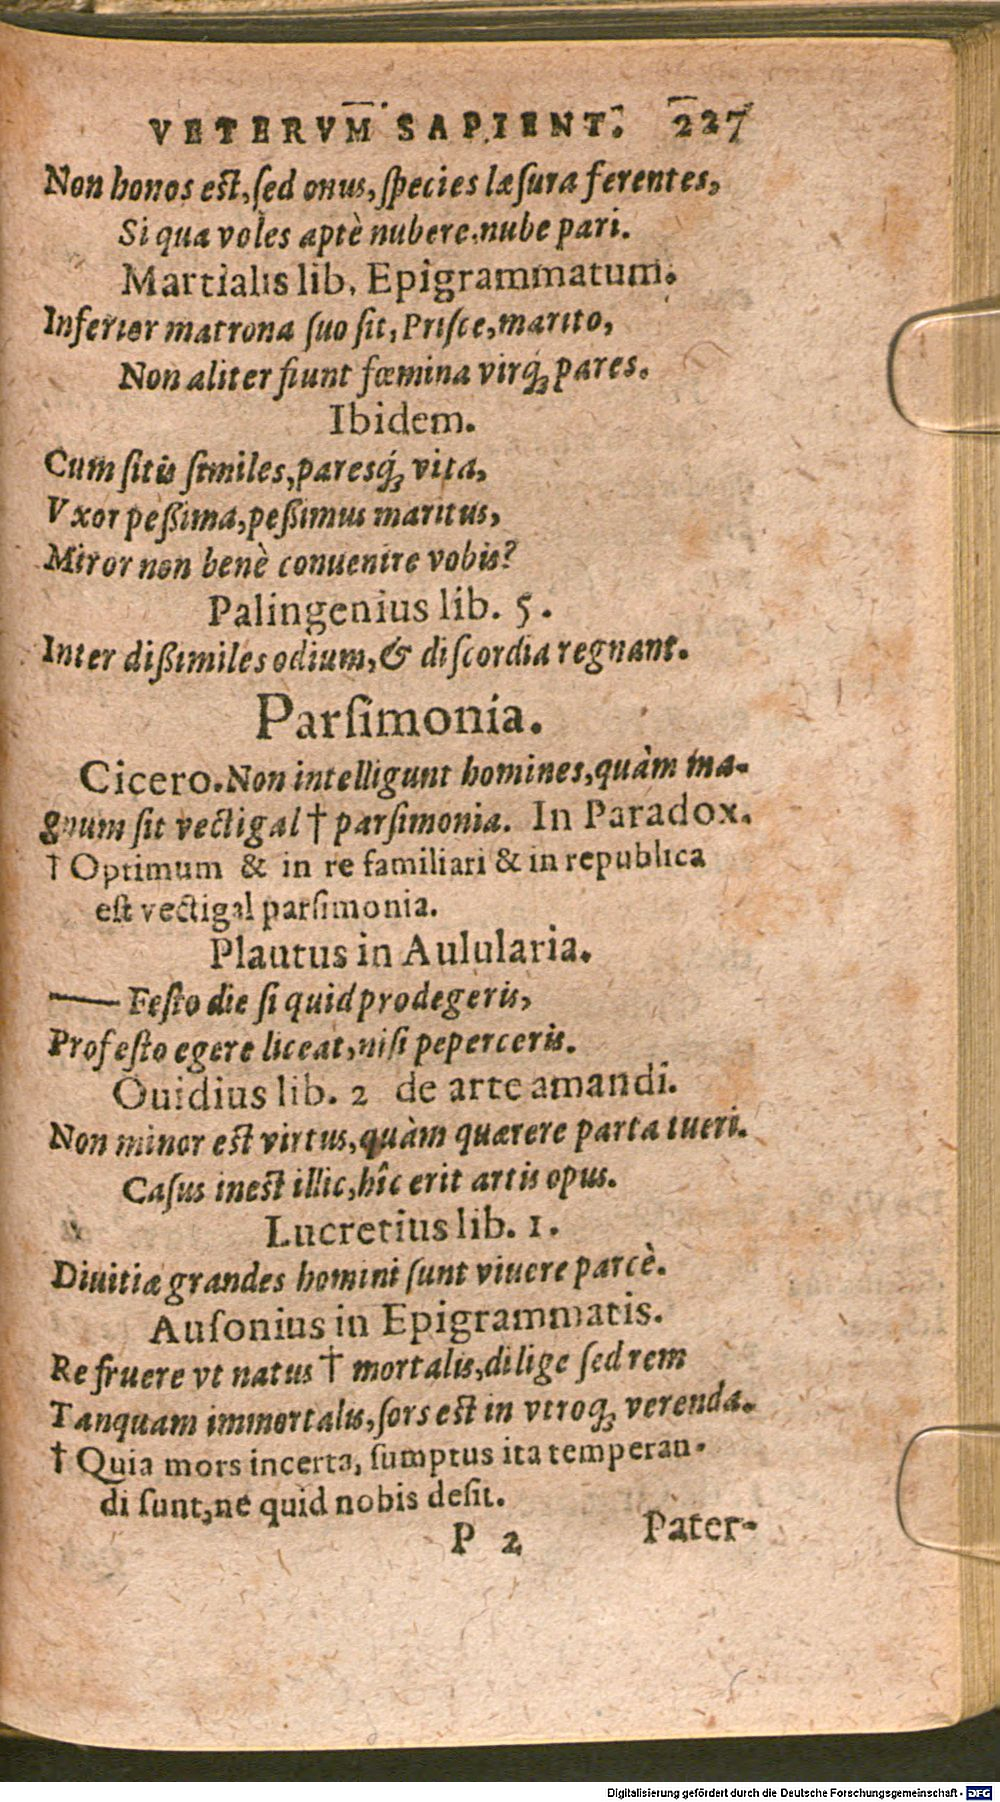 VETERVM SAPIENT. 227
Non honos est, ſed onus, ſpecies læſura ferentes,
Si qua voles aptè nubere, nube pari.
Martialis lib. Epigrammatum.
Inferior matrona ſuo ſit, Priſce, marito,
Non aliter fiunt fœmina virq́; pares.
Ibidem.
Cum ſitis ſimiles, paresq́; vita,
Vxor peßima, peßimus maritus,
Miror non benè conuenire vobis?
Palingenius lib. 5.
Inter dißimiles odium, & diſcordia regnant.
Parſimonia.
Cicero. Non intelligunt homines, quàm ma-
gnum ſit vectigal † parſimonia. In Paradox.
† Optimum & in re familiari & in republica
eſt vectigal parſimonia.
Plautus in Aulularia.
— Feſto die ſi quid prodegeris,
Profeſto egere liceat, niſi peperceris.
Ouidius lib. 2 de arte amandi.
Non minor est virtus, quàm quærere parta tueri.
Caſus inest illic, hîc erit artis opus.
Lucretius lib. 1.
Diuitiæ grandes homini ſunt viuere parcè.
Auſonius in Epigrammatis.
Re fruere vt natus † mortalis, dilige ſed rem
Tanquam immortalis, ſors est in vtroq; verenda.
† Quia mors incerta, ſumptus ita temperan-
di ſunt, ne quid nobis deſit.
P 2 Pater-
Digitalisierung gefördert durch die Deutsche Forschungsgemeinschaft - DFG